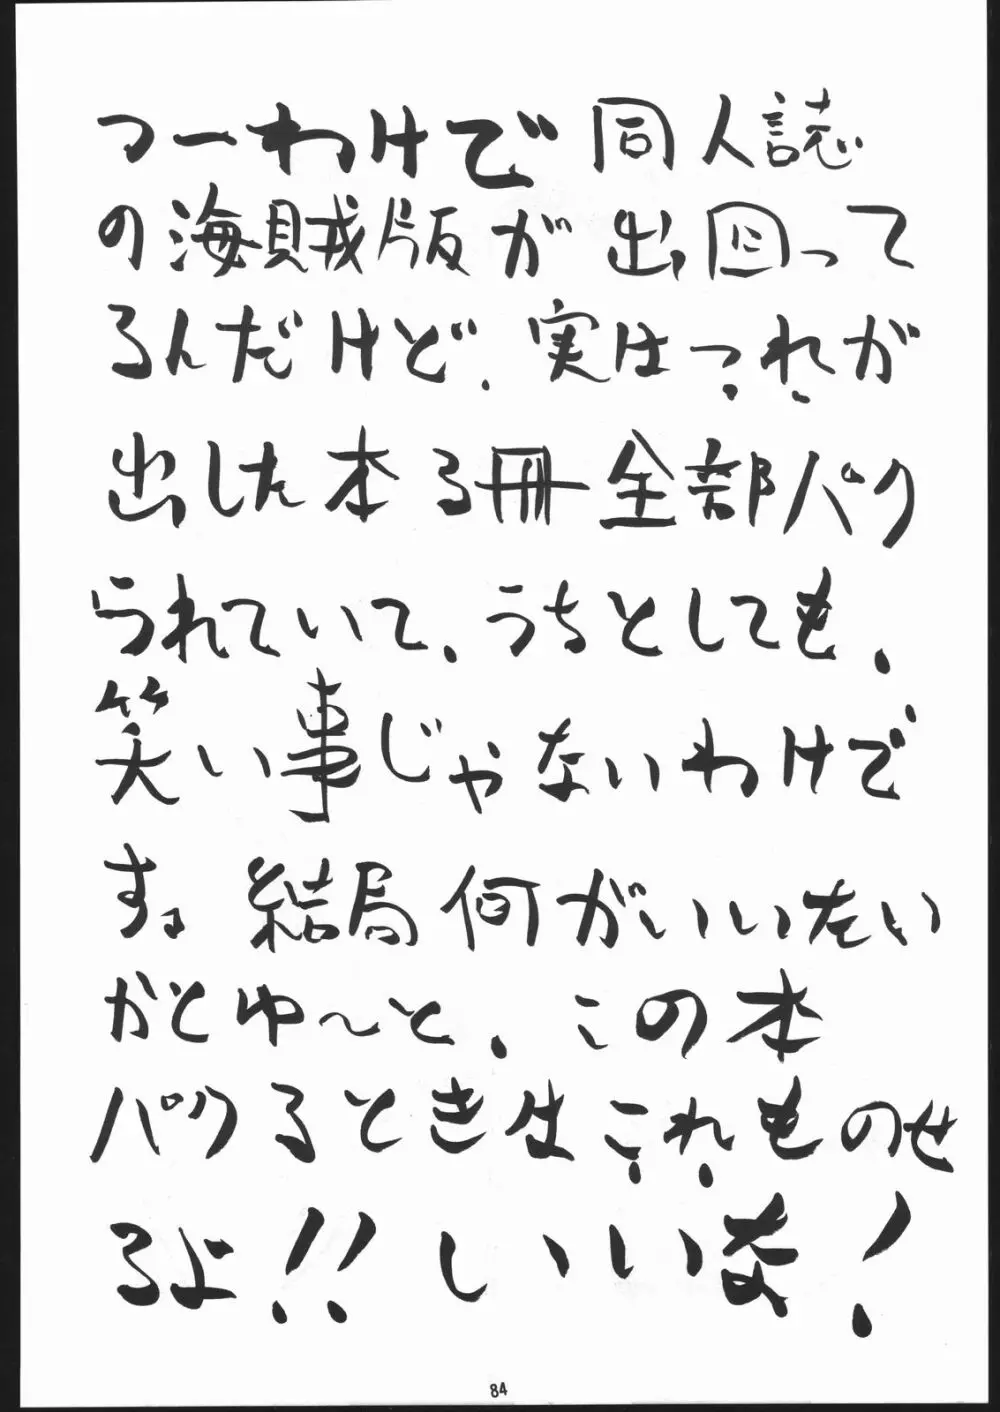 つーわけで同人誌
の海賊版が出回って
るんだけど、実はこれが
出した本る冊全部パク
られていて、うちとしても、
笑い事じゃないわけで
す。結局何がいいたい
かとゆ～と、この本
パクるときはこれものせ
るよ!!しいいな!
84